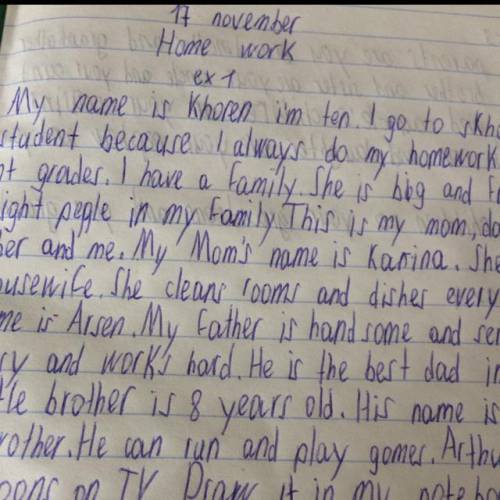 17 november
Home work
ex 1
My name is Khoren i'm ten. I go to skh
student because I always do my homework
grades. I have a family. She is bbg and
ight pegle in my family This is my mom, da
her and me. My Mom's name is Karina. She
ousewife. She cleans rooms and dishes every
me is Arsen. My father is handsome and ser
ry and work's hard. He is the best dad in
tle brother is 8 years old. His name is
rother. He can run and play games. Arthu
oons on TV Draw it in my noteb